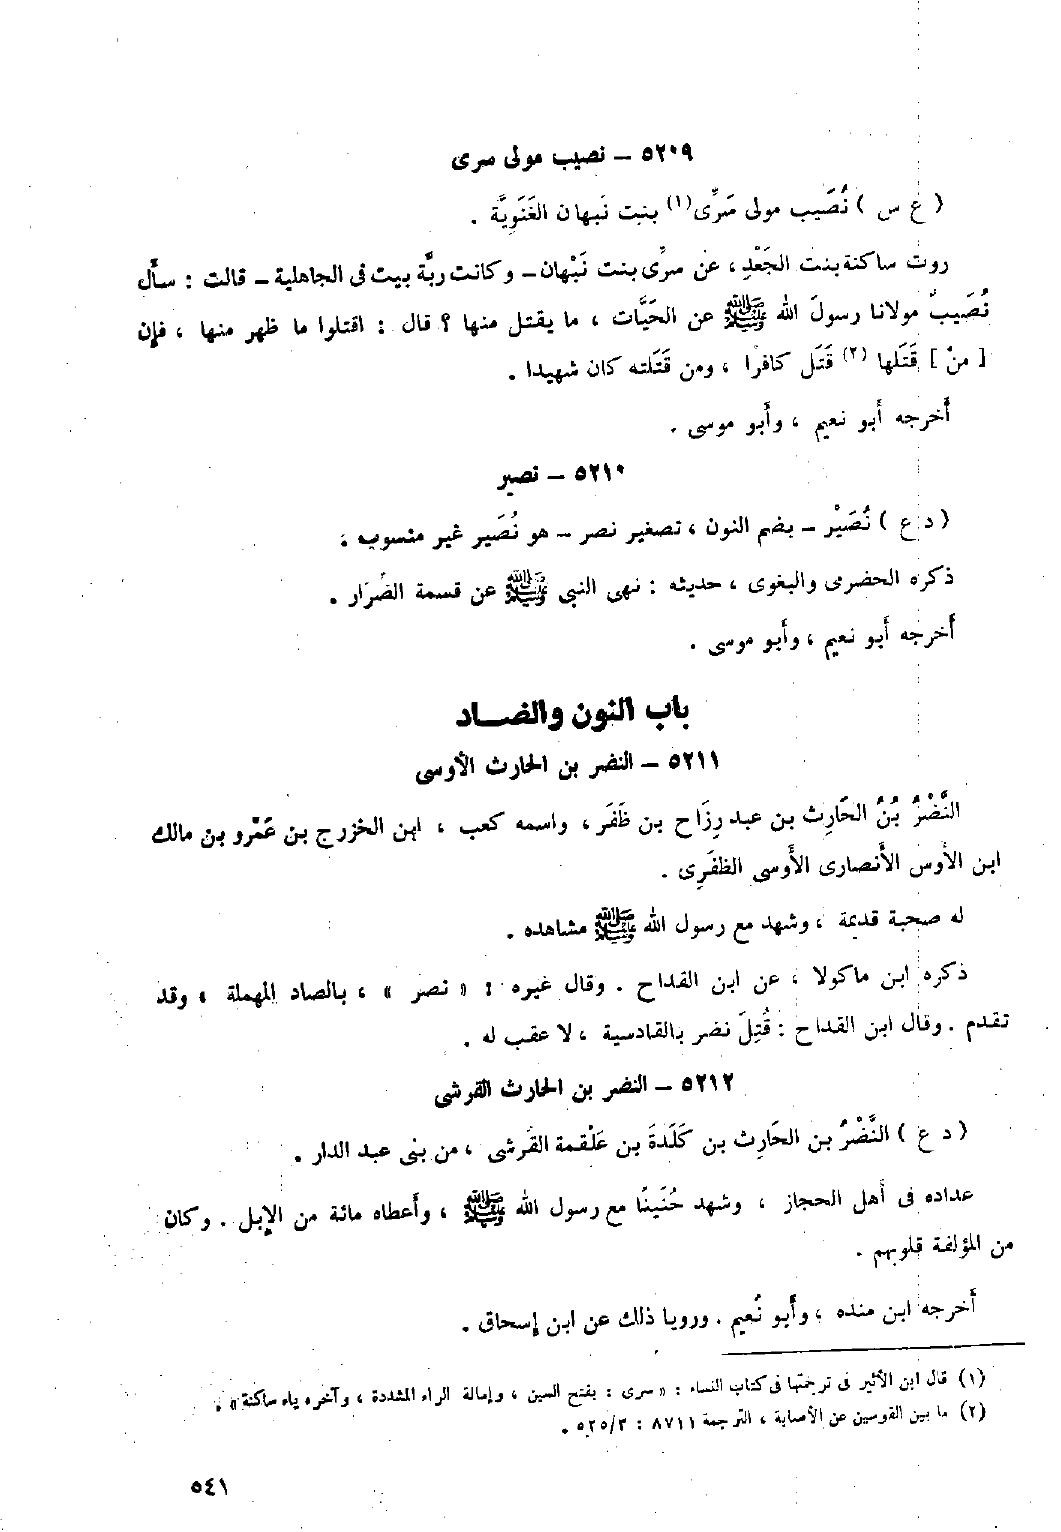 ٥٢٠٩ – نصيب مولى سرى
( ع س ) نُصَيب مولى سَرَّى(١) بنت نَبهان الغَنَوِيَّة .
روت ساكنة بنت الجَعْدِ ، عن سرَّى بنت نَبْهان – وكانت ربَّة بيت فى الجاهلية – قالت : سأَل
نُصَيبٌ مولانا رسولَ الله ﷺ عن الحَيَّات ، ما يقتل منها ؟ قال : اقتلوا ما ظهر منها ، فإن
[ منْ ] قَتَلها (٢) قَتَل كافرًا ، ومن قَتَلته كان شهيدا .
أَخرجه أَبو نعيم ، وأَبو موسى .
٥٢١٠ – نصير
( د ع ) نُصَيْر – بضم النون ، تصغير نصر – هو نُصَير غير منسوب .
ذكره الحضرمى والبغوى ، حديثه : نهى النبى ﷺ عن قسمة الضِّرَار .
أَخرجه أَبو نعيم ، وأَبو موسى .
باب النون والضاد
٥٢١١ – النضر بن الحارث الأوسى
النَّضْرُ بْنُ الحَارِث بن عبد رِزَاح بن ظَفَر ، واسمه كعب ، ابن الخزرج بن عَمْرو بن مالك
ابن الأَوس الأَنصارى الأَوسى الظفَرِى .
له صحبة قديمة ، وشهد مع رسول الله ﷺ مشاهده .
ذكره ابن ماكولا ، عن ابن القداح . وقال غيره : « نصر » ، بالصاد المهملة ، وقد
تقدم . وقال ابن القداح : قُتِلَ نضر بالقادسية ، لا عقب له .
٥٢١٢ – النضر بن الحارث القرشى
( د ع ) النَّضْرُ بن الحَارِث بن كَلَدَةَ بن عَلْقمة القُرشى ، من بنى عبد الدار .
عداده فى أَهل الحجاز ، وشهد حُنَينًا مع رسول الله ﷺ ، وأَعطاه مائة من الإِبل . وكان
من المؤلفة قلوبهم .
أَخرجه ابن منده ، وأَبو نُعيم . ورويا ذلك عن ابن إسحاق .
(١) قال ابن الأثير فى ترجمتها فى كتاب النساء : « سرى : بفتح السين ، وإمالة الراء المشددة ، وآخره ياء ساكنة » .
(٢) ما بين القوسين عن الأصابة ، الترجمة ٨٧١١ : ٥٢٥/٣ .
٥٤١